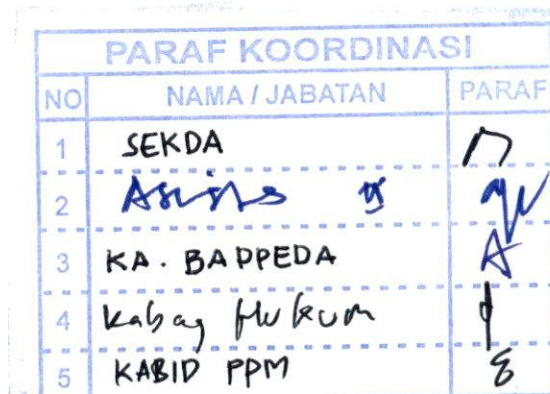 PARAF KOORDINASI
NO NAMA / JABATAN PARAF
1 SEKDA
2 Asisten II
3 KA. BAPPEDA
4 Kabag Hukum
5 KABID PPM